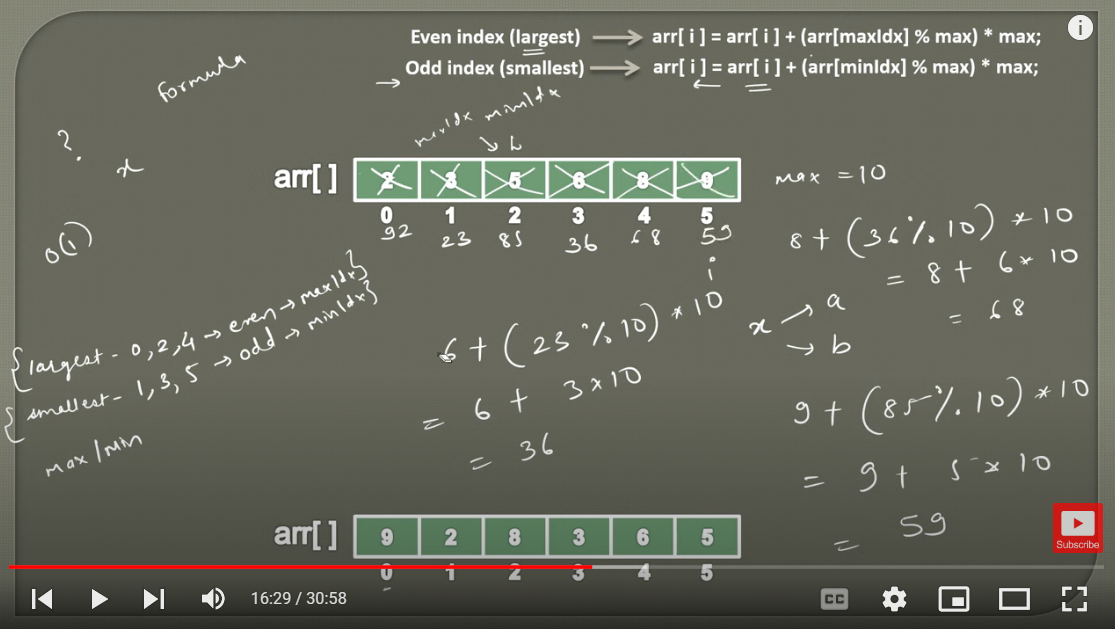 Even index (largest) → arr[ i ] = arr[ i ] + (arr[maxIdx] % max) * max;
→ Odd index (smallest) → arr[ i ] = arr[ i ] + (arr[minIdx] % max) * max;
i
formula
?
x
O(1)
maxIdx minIdx
arr[ ] 2 3 5 6 8 9
0 1 2 3 4 5
92 23 85 36 68 59
i
max = 10
8 + (36 % 10) * 10
= 8 + 6 * 10
= 68
x → a
→ b
{largest - 0, 2, 4 → even → maxIdx}
{smallest - 1, 3, 5 → odd → minIdx}
max/min
6 + (23 % 10) * 10
= 6 + 3 x 10
= 36
9 + (85 % 10) * 10
= 9 + 5 x 10
= 59
arr[ ] 9 2 8 3 6 5
0 1 2 3 4 5
Subscribe
16:29 / 30:58
CC